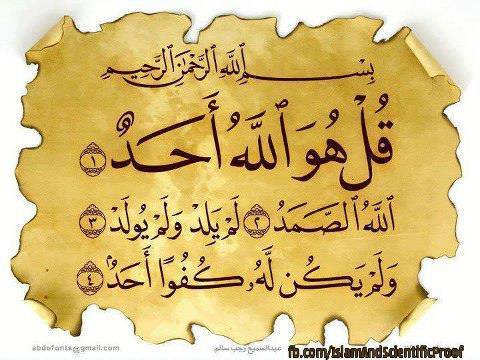 بِسْمِ ٱللَّهِ ٱلرَّحْمَٰنِ ٱلرَّحِيمِ
قُلْ هُوَ ٱللَّهُ أَحَدٌ ١
ٱللَّهُ ٱلصَّمَدُ ٢ لَمْ يَلِدْ وَلَمْ يُولَدْ ٣
وَلَمْ يَكُن لَّهُۥ كُفُوًا أَحَدٌۢ ٤
abdofonts@gmail.com عبدالسميع رجب سالم
fb.com/IslamAndScientificProof